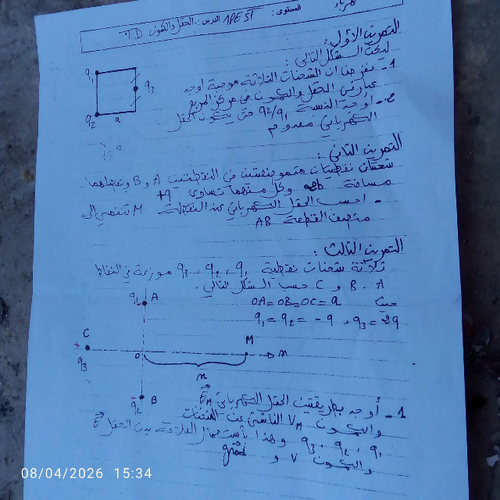 كهرباء
المستوى: 1PEST الدرس: الحقل والكمون TD
التمرين الأول:
ليكن الشكل التالي:
1- بفرض أن الشحنات الثلاثة موجبة أوجد
عبارتي الحقل والكمون في مركز المربع
2- أوجد النسبة q2/q1 حتى يكون الحقل
الكهربائي معدوم
q1
q3
q2
a
التمرين الثاني:
شحنتان نقطيتان متموضعتين في النقطتين A و B وتفصلهما
مسافة وكل منهما تساوي +q
- احسب الحقل الكهربائي عند النقطة M تنتمي إلى
منتصف القطعة AB
التمرين الثالث:
ثلاثة شحنات نقطية q1 , q2 , q3 موزعة في النقاط
A . B و C حسب الشكل التالي.
حيث OA=OB=OC=a
q1=q2=-q , q3=2q
A
C
q3
O
M
x
x
B
1- أوجد بطريقتين الحقل الكهربائي EM
والكمون VM الناشئ عن الشحنات
q1 , q2 , q3 وهذا باستعمال العلاقة بين الحقل E
والكمون V و grad
08/04/2026 15:34